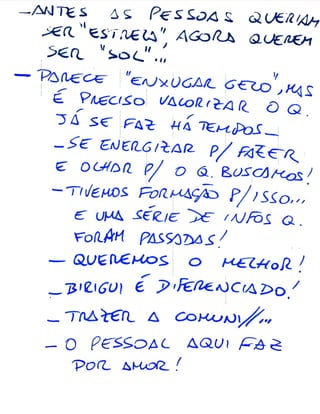 —ANTES AS PESSOAS QUERIAM
SER "ESTRELA", AGORA QUEREM
SER "SOL"...
— PARECE "ENXUGAR GELO", MAS
É PRECISO VALORIZAR O Q.
JÁ SE FAZ HÁ TEMPOS—
—SE ENERGIZAR P/ FAZER
E OLHAR P/ O Q. BUSCAMOS!
—TIVEMOS FORMAÇÃO P/ ISSO...
E UMA SÉRIE DE INFOS Q.
FORAM PASSADAS!
— QUEREMOS O MELHOR!
—BIRIGUI É DIFERENCIADO!
— TRAZER A COMUNI//...
— O PESSOAL AQUI FAZ
POR AMOR!